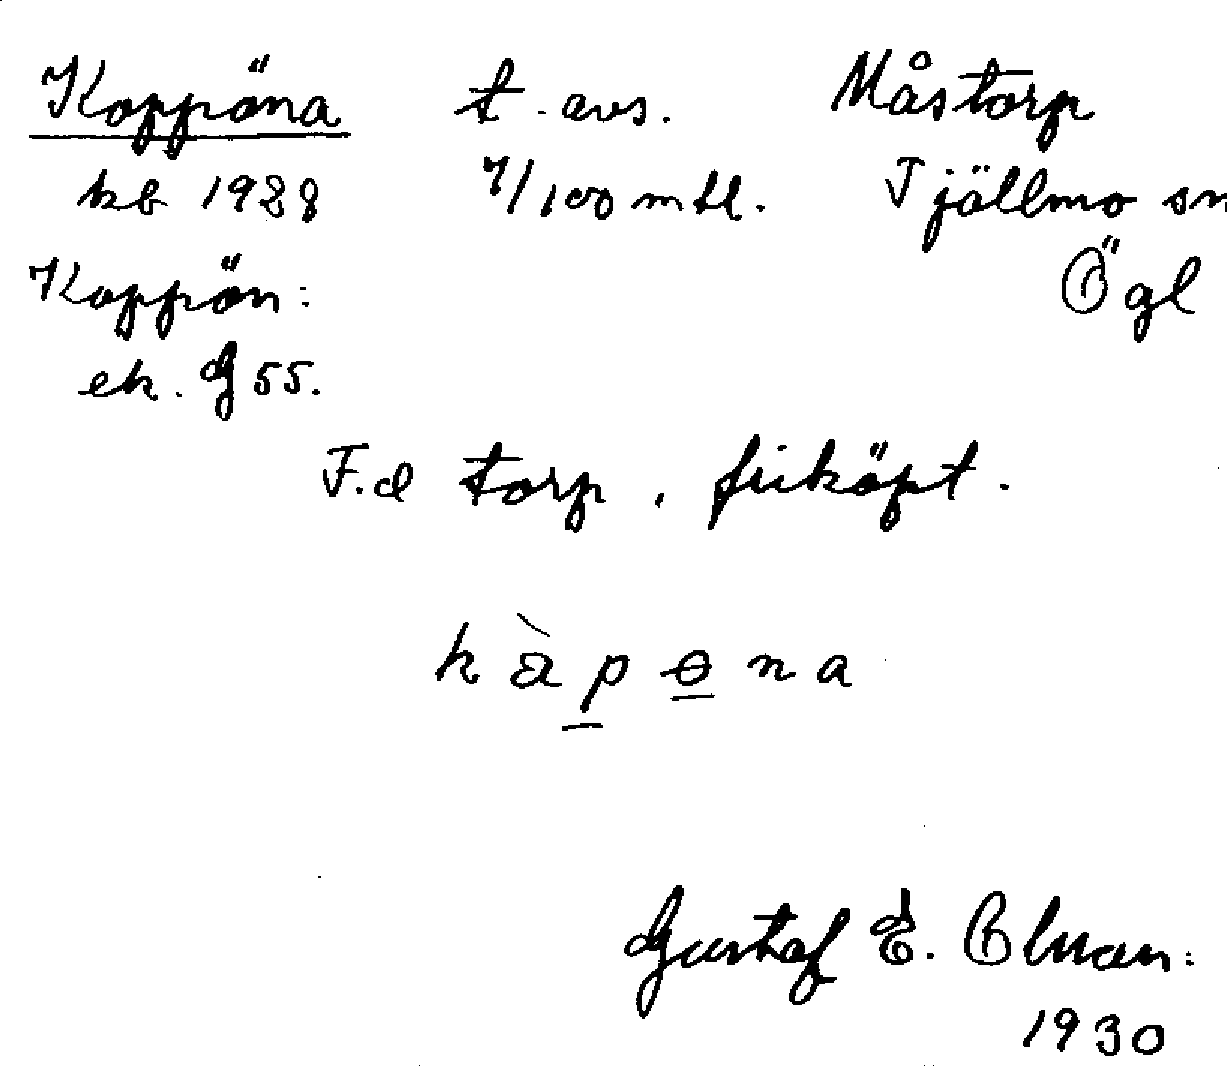 Koppöna t. avs. Måstorp
kb 1928 7/100 mtl. Tjällmo sn
Koppön: Ögl
ek. G 55.
F.d torp, friköpt.
kàpɵna
Gustaf E.
1930